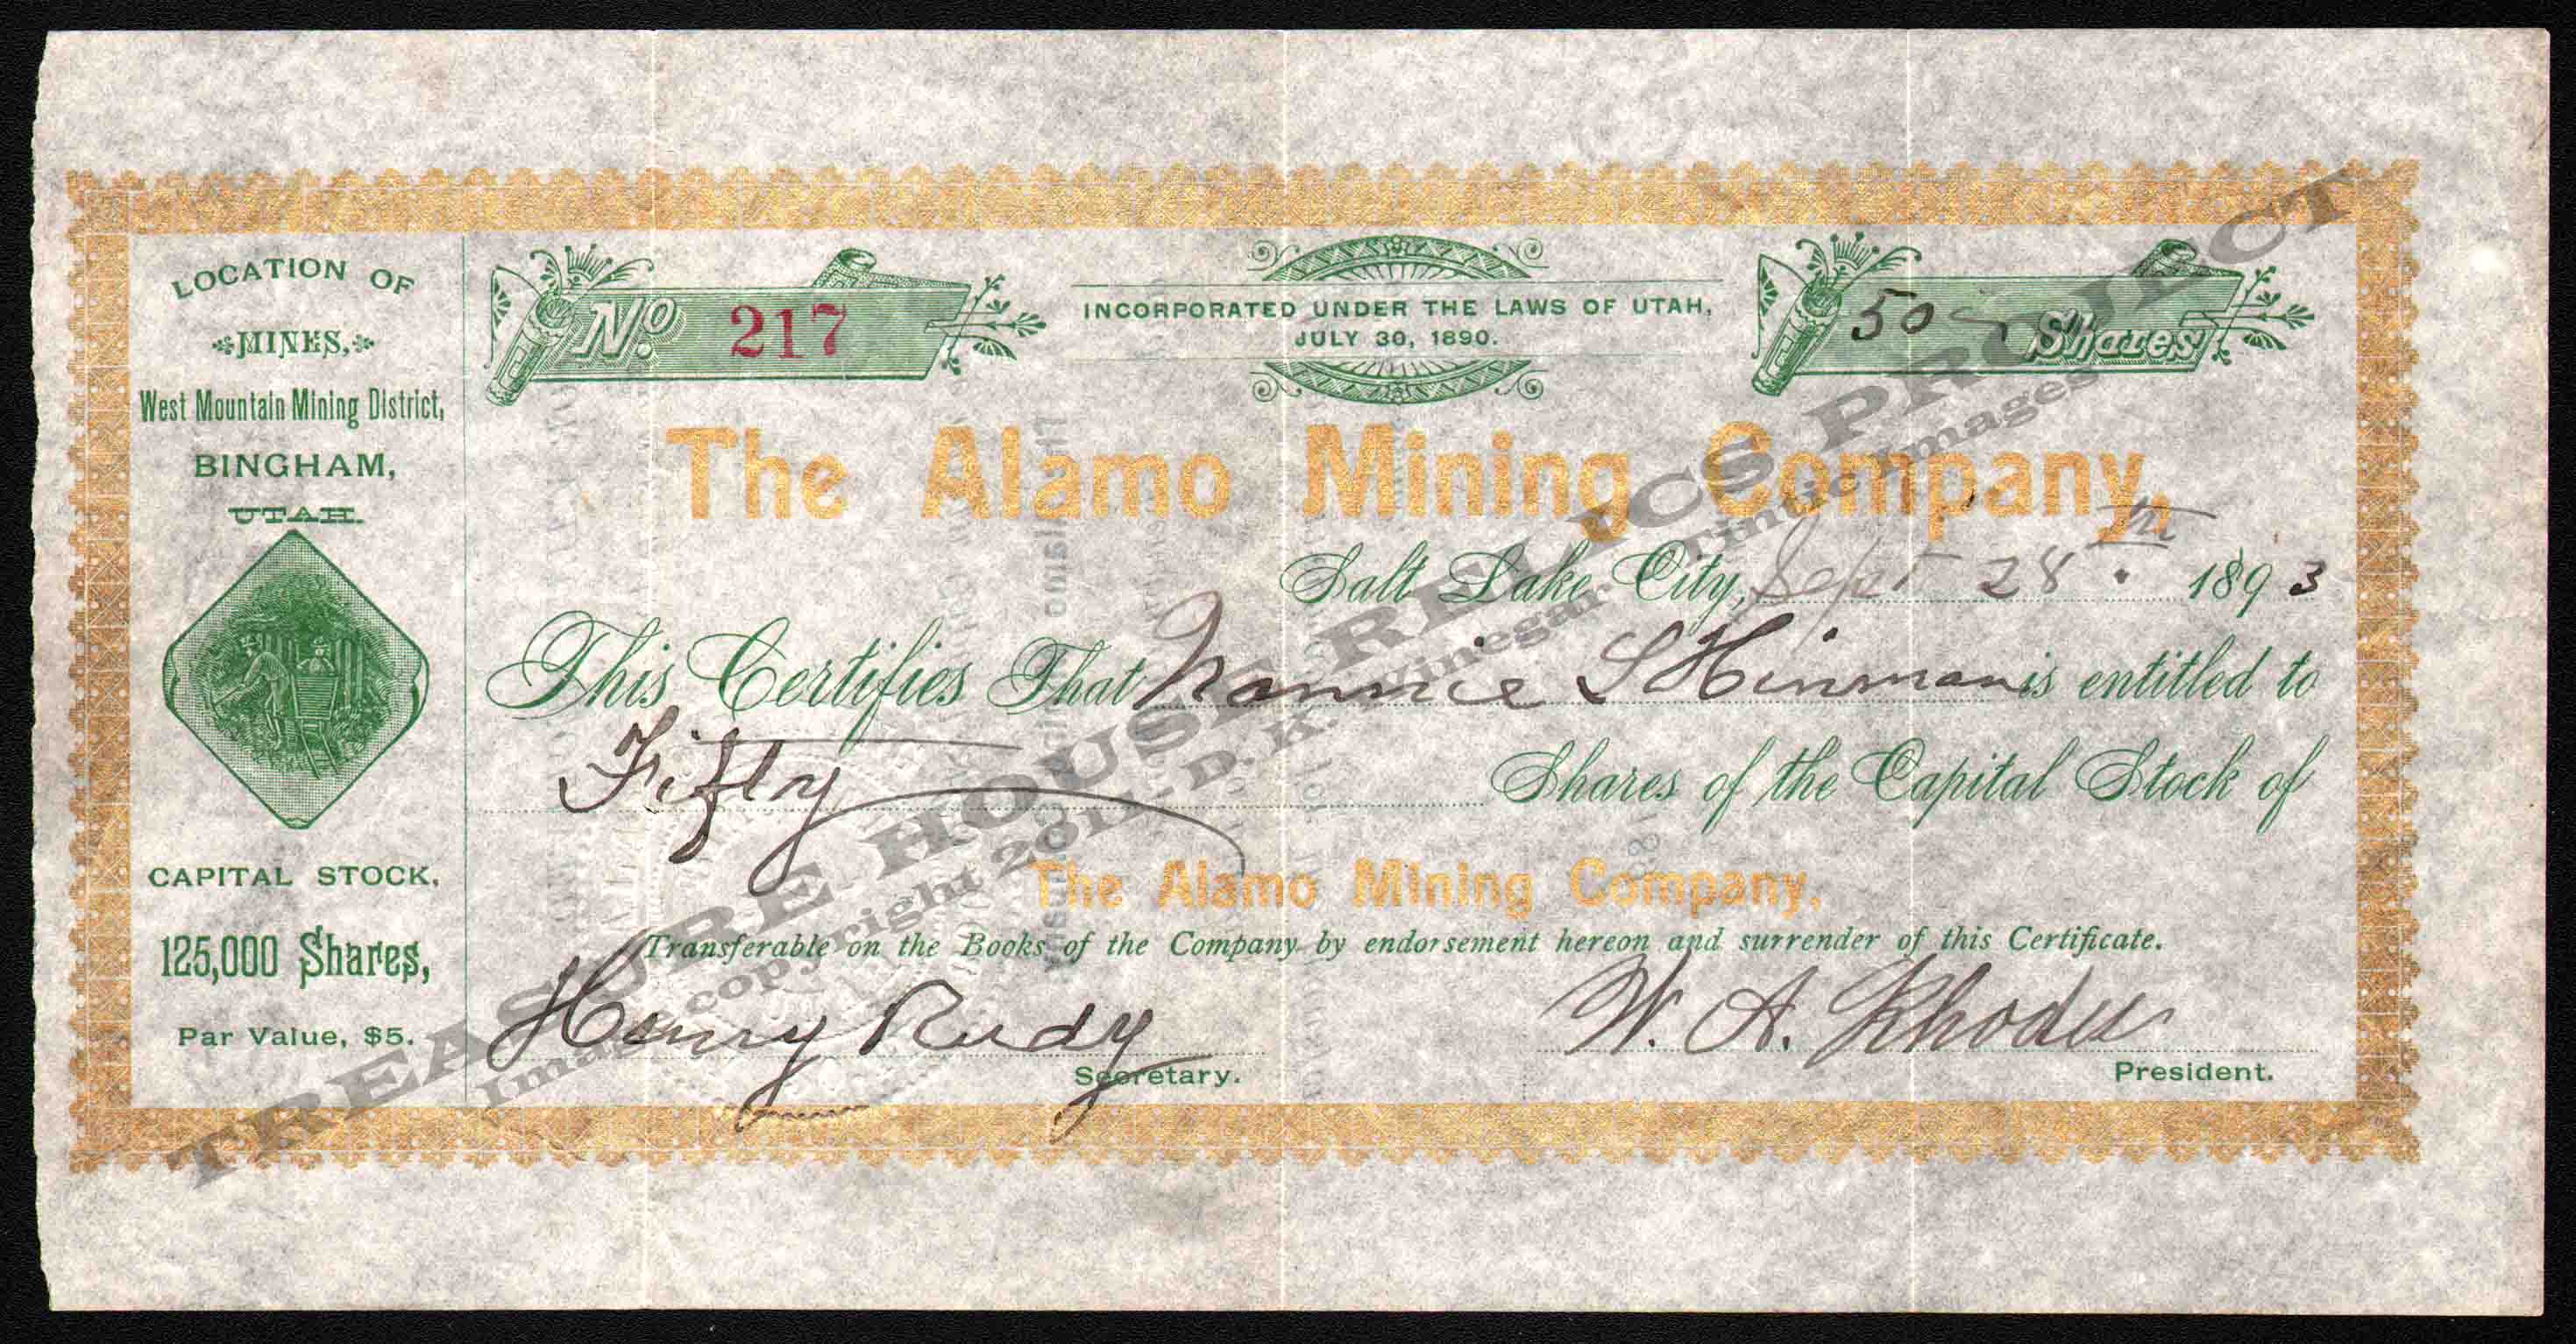 LOCATION OF
MINES,
West Mountain Mining District,
BINGHAM,
UTAH.
CAPITAL STOCK,
125,000 Shares,
Par Value, $5.
No. 217
INCORPORATED UNDER THE LAWS OF UTAH,
JULY 30, 1890.
50 Shares
The Alamo Mining Company,
Salt Lake City, Sept 28th 1893
This Certifies That Nannie S Hinman is entitled to
Fifty Shares of the Capital Stock of
The Alamo Mining Company.
Transferable on the Books of the Company by endorsement hereon and surrender of this Certificate.
Henry Rudy
Secretary.
W. A. Rhodes
President.
TREASURE HOUSE RELICS PROJECT
Image copyright 2011 - D. K. Vinegar Tintic Images